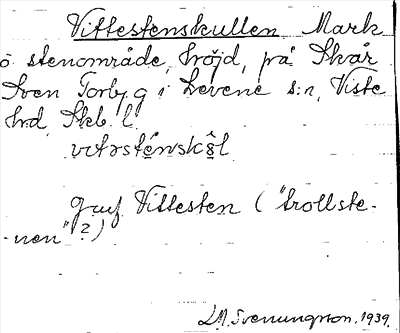 Vittestenskullen Mark
o stenområde, höjd, på Skår
Sven Torb. g i Levene s:n, Viste
hrd, Skb. l.
vɩtəsténskɵ̂l
Jmf Vittesten ("trollste-
-nen"?)
L.M. Svenungsson. 1939.